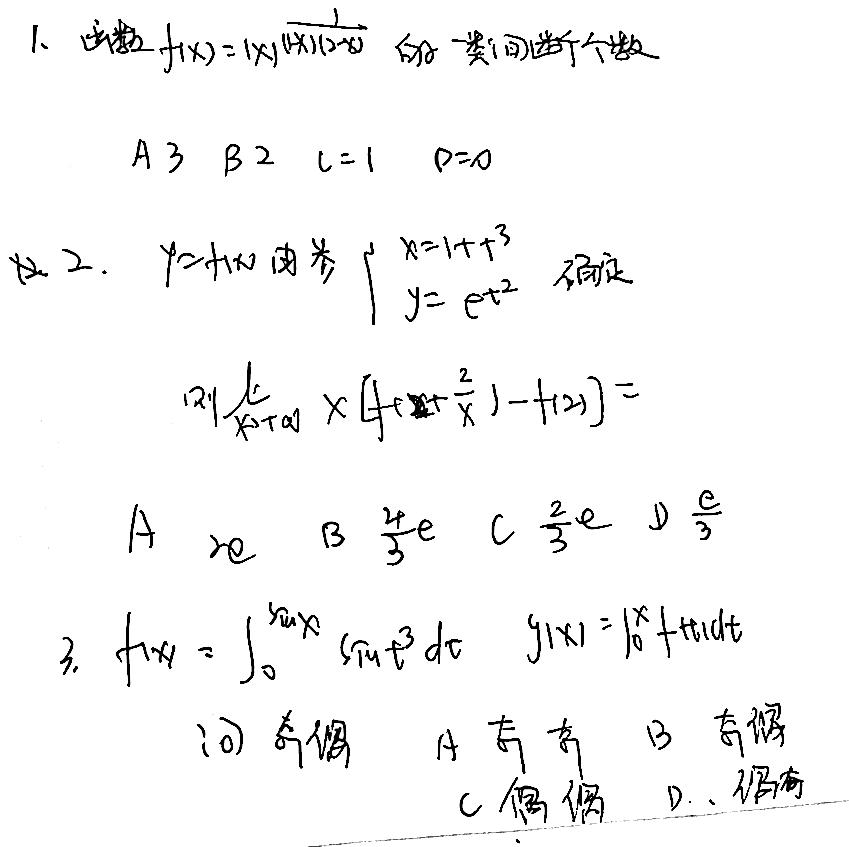 1. 函数 f(x)=|x|^{\frac{1}{(1-x)(x-2)}} 的一类间断个数
A 3 B 2 C=1 D=0
2. y=f(x) 由参 { x=1+t^3
y=e^{t^2} 确定
则 x→+∞ x[f(2+\frac{2}{x})-f(2)]=
A 2e B \frac{4}{3}e C \frac{2}{3}e D \frac{e}{3}
3. f(x)=∫_0^{sinx} sint^3 dt g(x)=∫_0^x f(t)dt
问 奇偶 A 奇奇 B 奇偶
C 偶偶 D. 偶奇